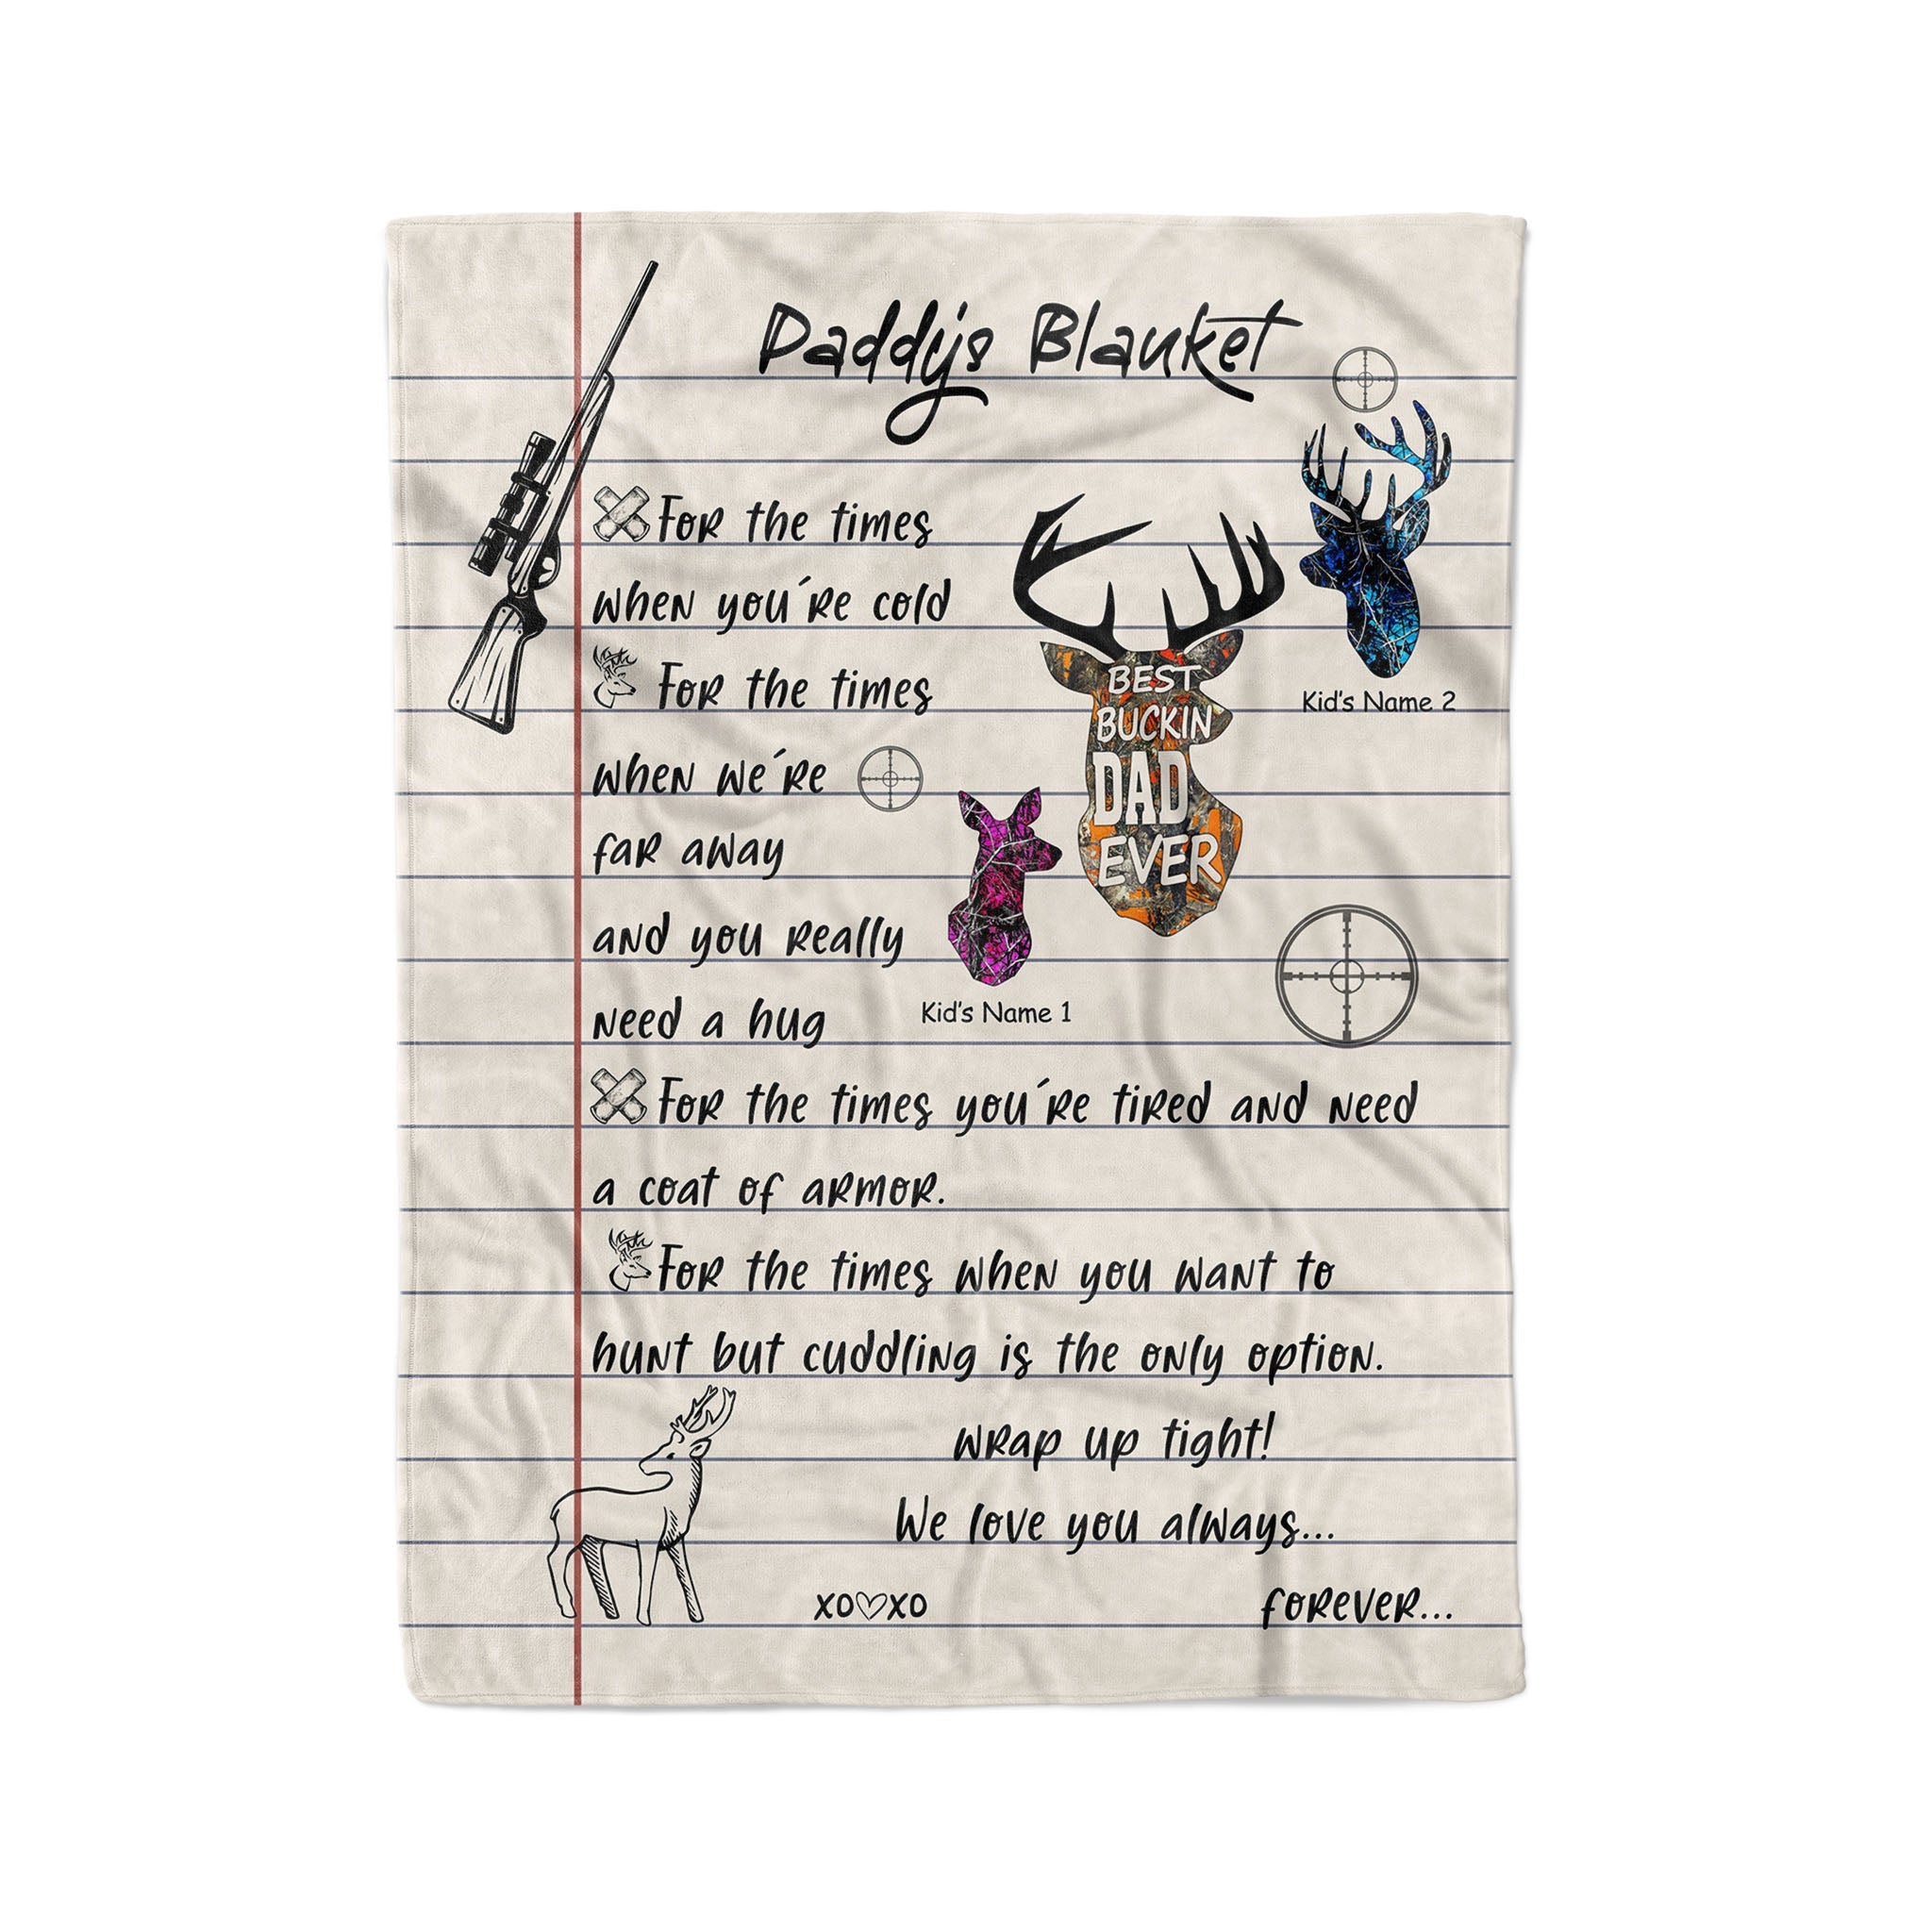 Daddy's Blanket
For the times
when you're cold
For the times
when we're
far away
and you really
need a hug
BEST
BUCKIN
DAD
EVER
Kid's Name 2
Kid's Name 1
For the times you're tired and need
a coat of armor.
For the times when you want to
hunt but cuddling is the only option.
Wrap up tight!
We love you always...
XO♡XO
forever...